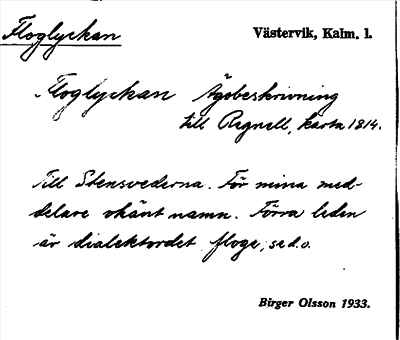 Floglyckan
Västervik, Kalm. l.
Floglyckan Ägobeskrivning
till Regnell, karta 1814.
Till Stensvederna. För mina med-
delare okänt namn. Förra leden
är dialektordet floge, se d.o.
Birger Olsson 1933.